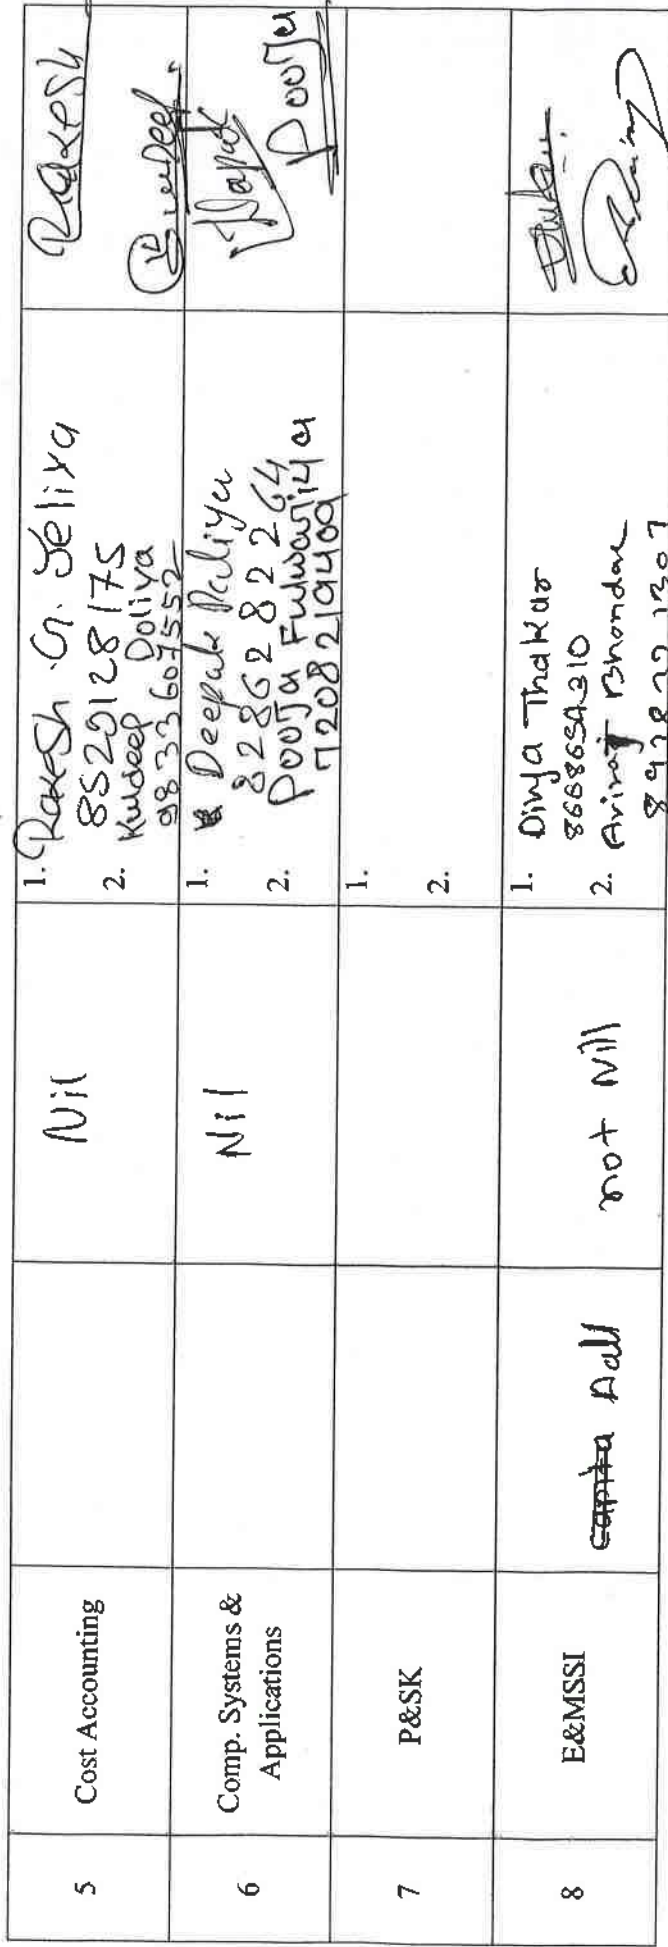 5
Cost Accounting
Nil
1. Rakesh G. Jeliya
8529128175
2. Kuldeep Doliya
9833607552
Rakesh
Kuldeep
6
Comp. Systems &
Applications
Nil
1. Deepak Paliya
8286282264
2. Pooja Fulwariya
7208219409
Pooja
7
P&SK
1.
2.
8
E&MSSI
capita Aall
not Nill
1. Divya Thakar
2. Bhondave